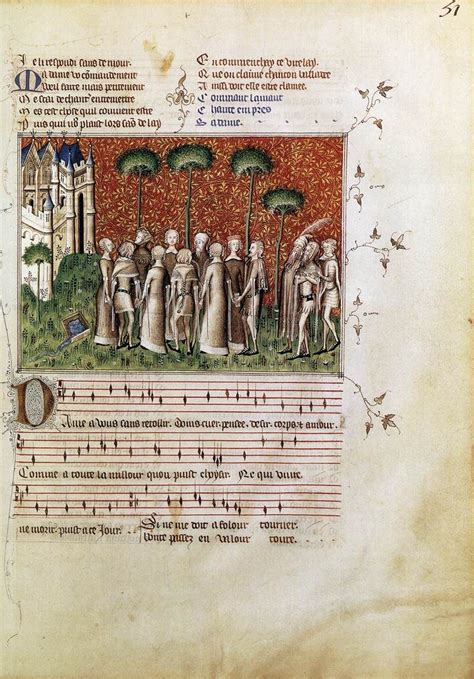 51
Je li respondi sans demour
Ma dame vo commandement
Vueil faire mais petitement
Me scai de chant entremettre
Mes cest chose quil couvient estre
Puis quil vo plaist lors sans delay
En commencay ce virelay
Que on claime chancon baladee
Ainsi doit elle estre clamee
Comment lamant
chante empres
sa dame
Dame a vous sans retollir. Doins cuer. pensee. desir. corps. & amour.
Comme a toute la millour quon puist choysir. Ne qui vivre.
ne morir. puist a ce jour.
Si ne me doit a folour tourner.
Bonte passez en valour toute.